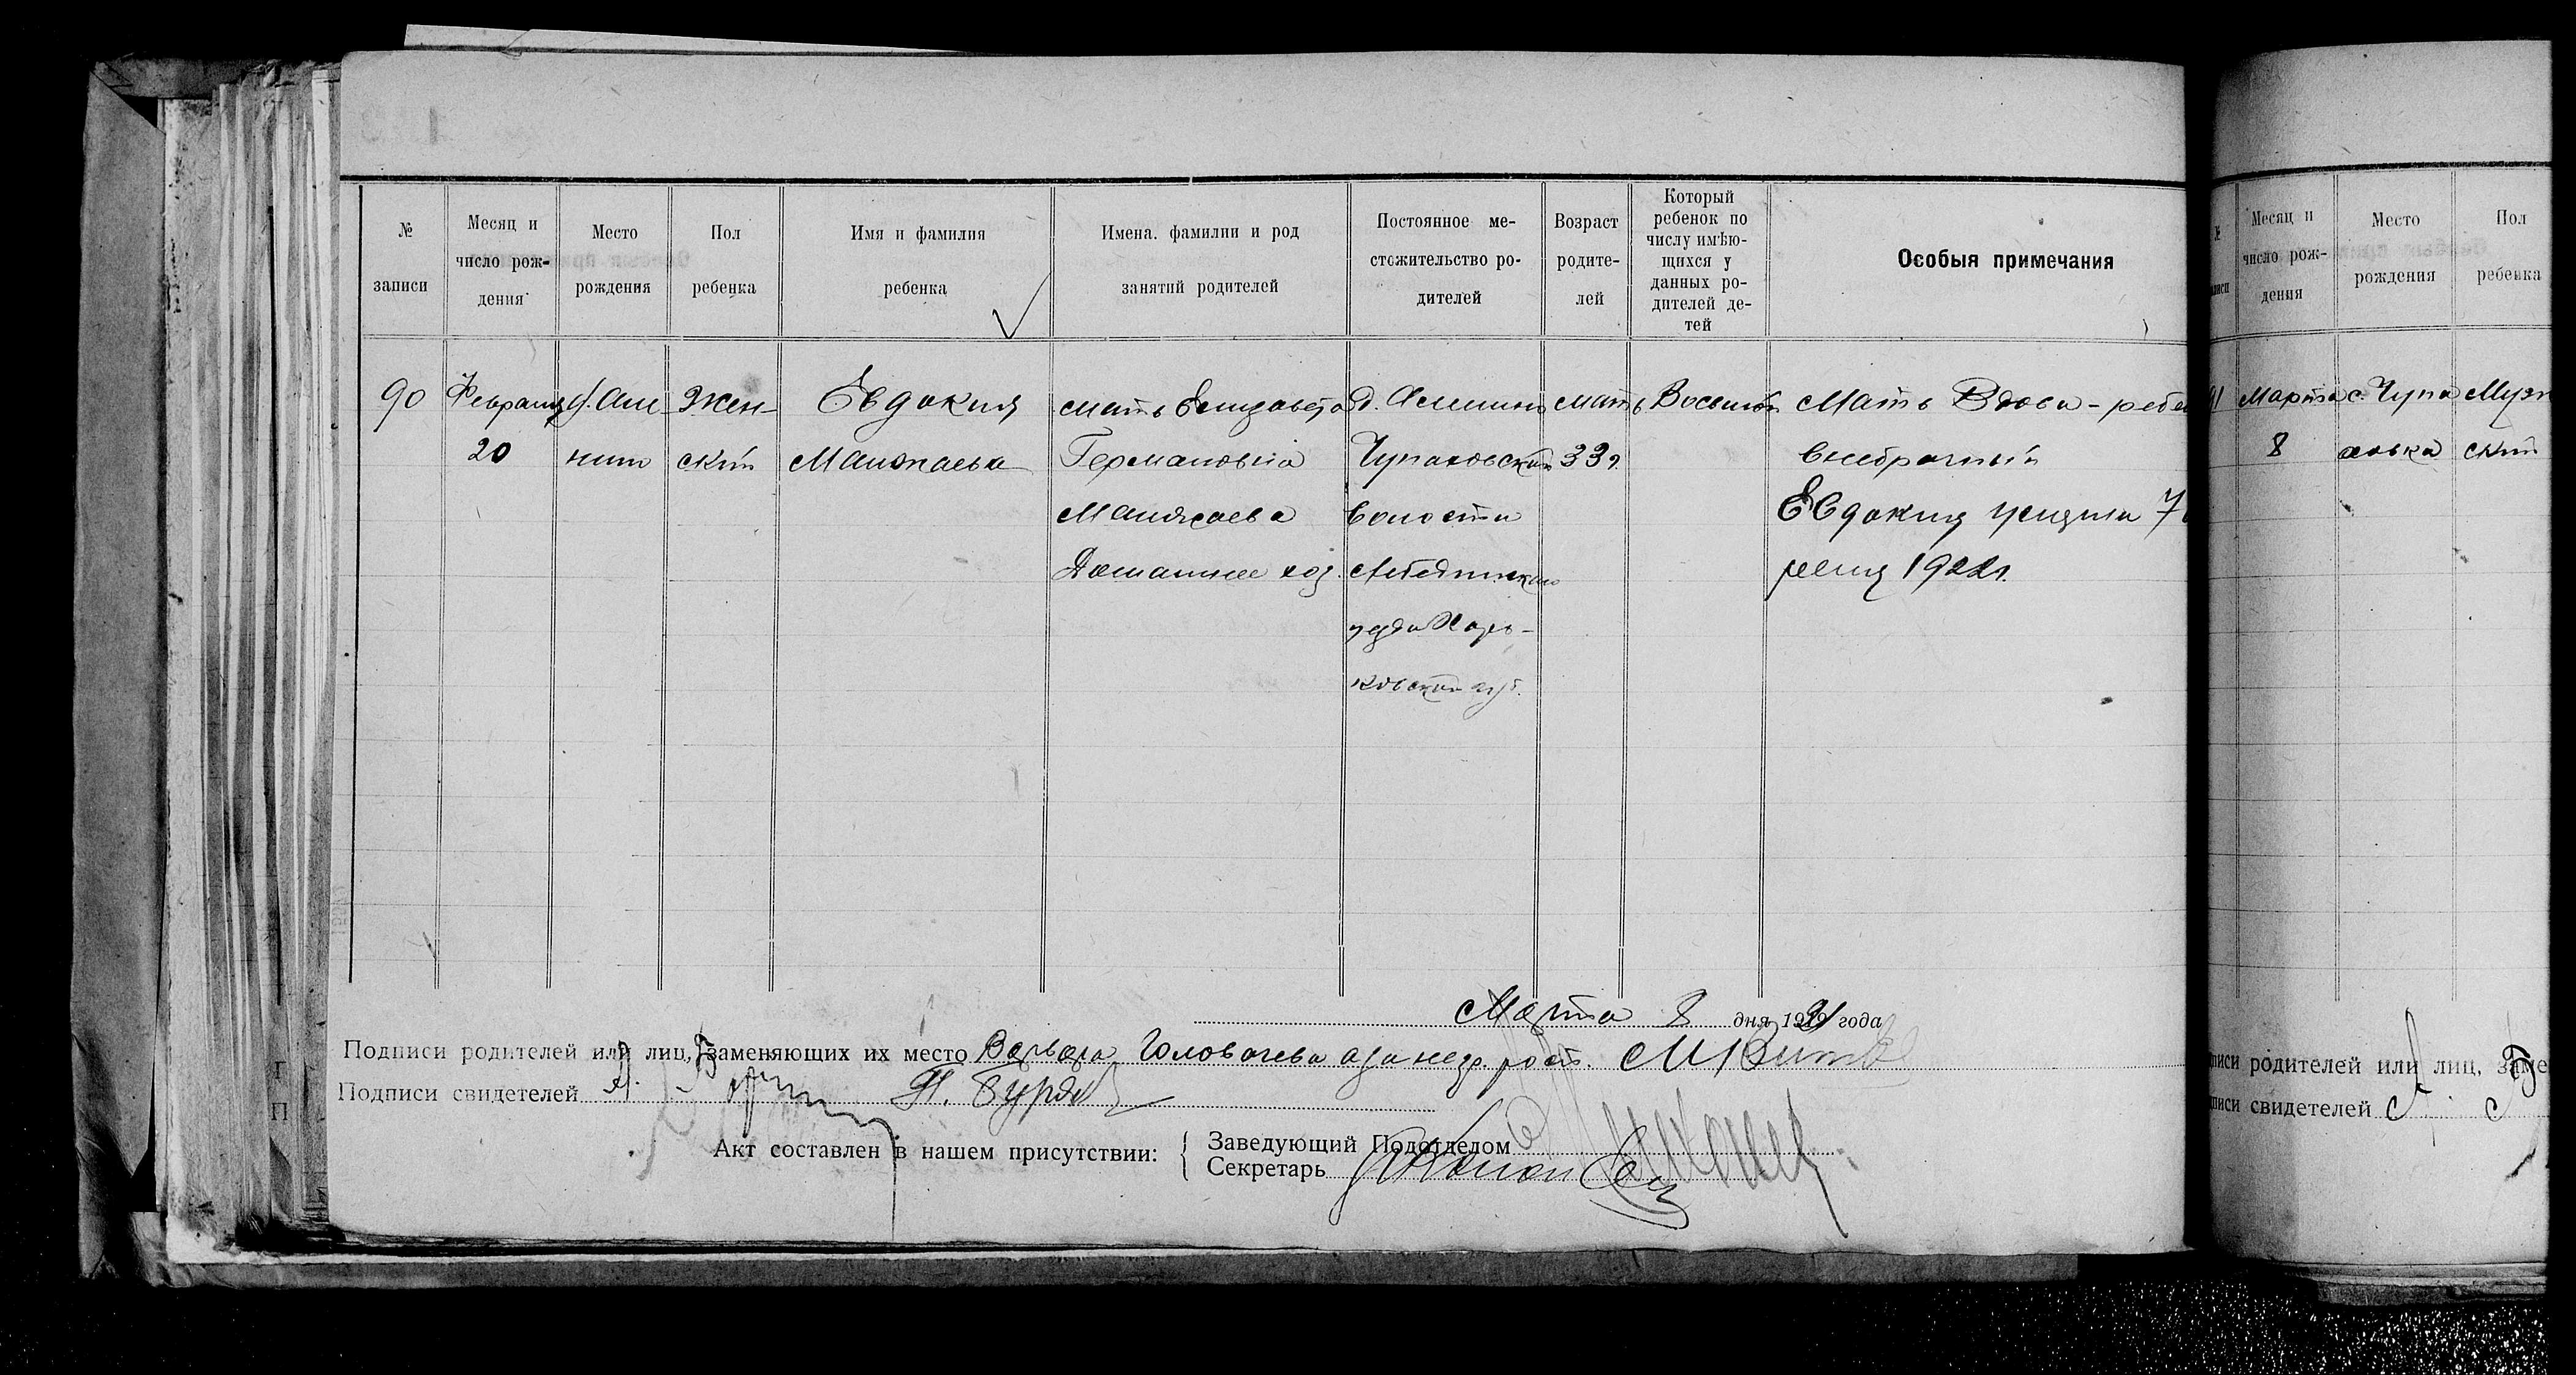 № записи
Месяц и число рождения
Место рождения
Пол ребенка
Имя и фамилия ребенка
Имена. фамилии и род занятий родителей
Постоянное местожительство родителей
Возраст родителей
Который ребенок по числу имѣющихся у данных родителей детей
Особыя примечания
90
Февраля
20
Жен-
ский
Евдокия
мать Елизавета
Германовна
Домашнее хоз.
Чупаховской
волости
уезда Харь-
ковской губ.
мать
33 г.
Мать Вдова - ребе
внебрачный
Евдокия
1922 г.
Марта 8 дня 1921 года
Подписи родителей или лиц, заменяющих их место Варвара Головачева а за негр. рост.
Подписи свидетелей
Акт составлен в нашем присутствии:
Заведующий Подотделом
Секретарь
Месяц и число рождения
Место рождения
Пол ребенка
91
Марта
8
с. Чупа
ховка
Муж
ский
писи родителей или лиц, заме
писи свидетелей